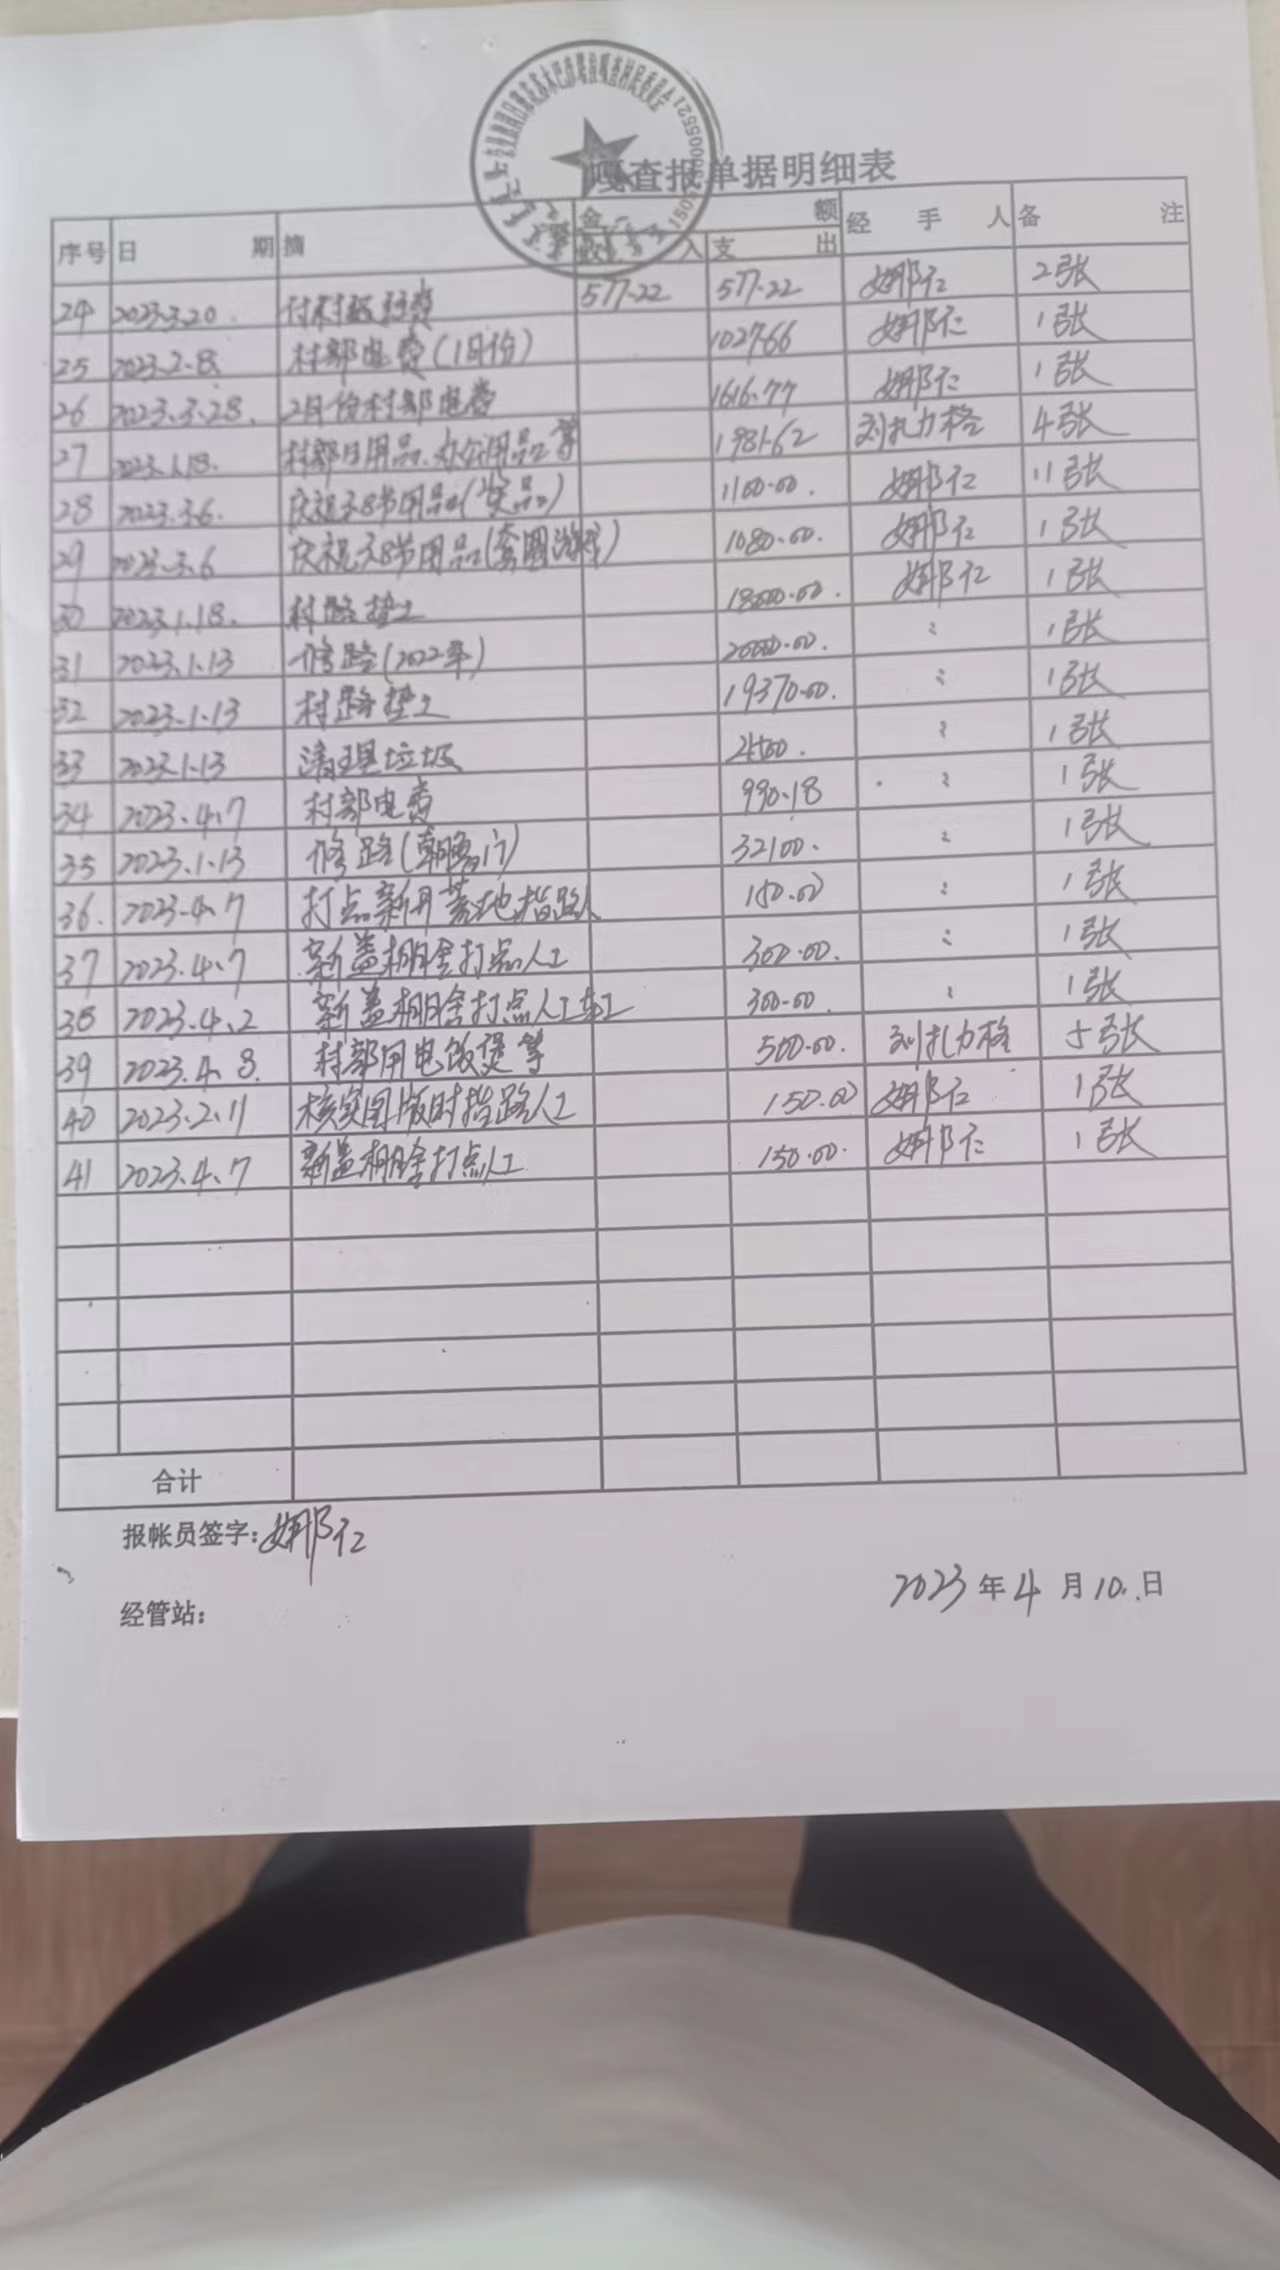 嘎查报单据明细表
序号 日期 摘 金额 经手人 备注
收入 支出
24 2023.3.20. 付村级经费 577.22 577.22 娜仁 2张
25 2023.2.8 村部电费(1月份) 1027.66 娜仁 1张
26 2023.3.28. 2月份村部电费 1616.77 娜仁 1张
27 2023.1.18. 村部日用品、办公用品等 1981.62 刘扎力格 4张
28 2023.3.6. 庆祝3.8节用品(奖品) 1100.00. 娜仁 11张
29 2023.3.6 庆祝3.8节用品(套圈游戏) 1080.00. 娜仁 1张
30 2023.1.18. 村路垫土 18000.00. 娜仁 1张
31 2023.1.13 修路(2022年) 20000.00. 〃 1张
32 2023.1.13 村路垫土 19370.00. 〃 1张
33 2023.1.13 清理垃圾 2400. 〃 1张
34 2023.4.7 村部电费 990.18 〃 1张
35 2023.1.13 修路( 32100. 〃 1张
36. 2023.4.7 打点新开荒地指路人 150.00 〃 1张
37 2023.4.7 新盖棚舍打点人工 300.00. 〃 1张
38 2023.4.2 新盖棚舍打点人工 300.00. 〃 1张
39 2023.4.8. 村部用电饭煲等 500.00. 刘扎力格 5张
40 2023.2.11 核实图版时指路人工 150.00 娜仁 1张
41 2023.4.7 新盖棚舍打点人工 150.00. 娜仁 1张
合计
报帐员签字:娜仁
2023年4月10.日
经管站: